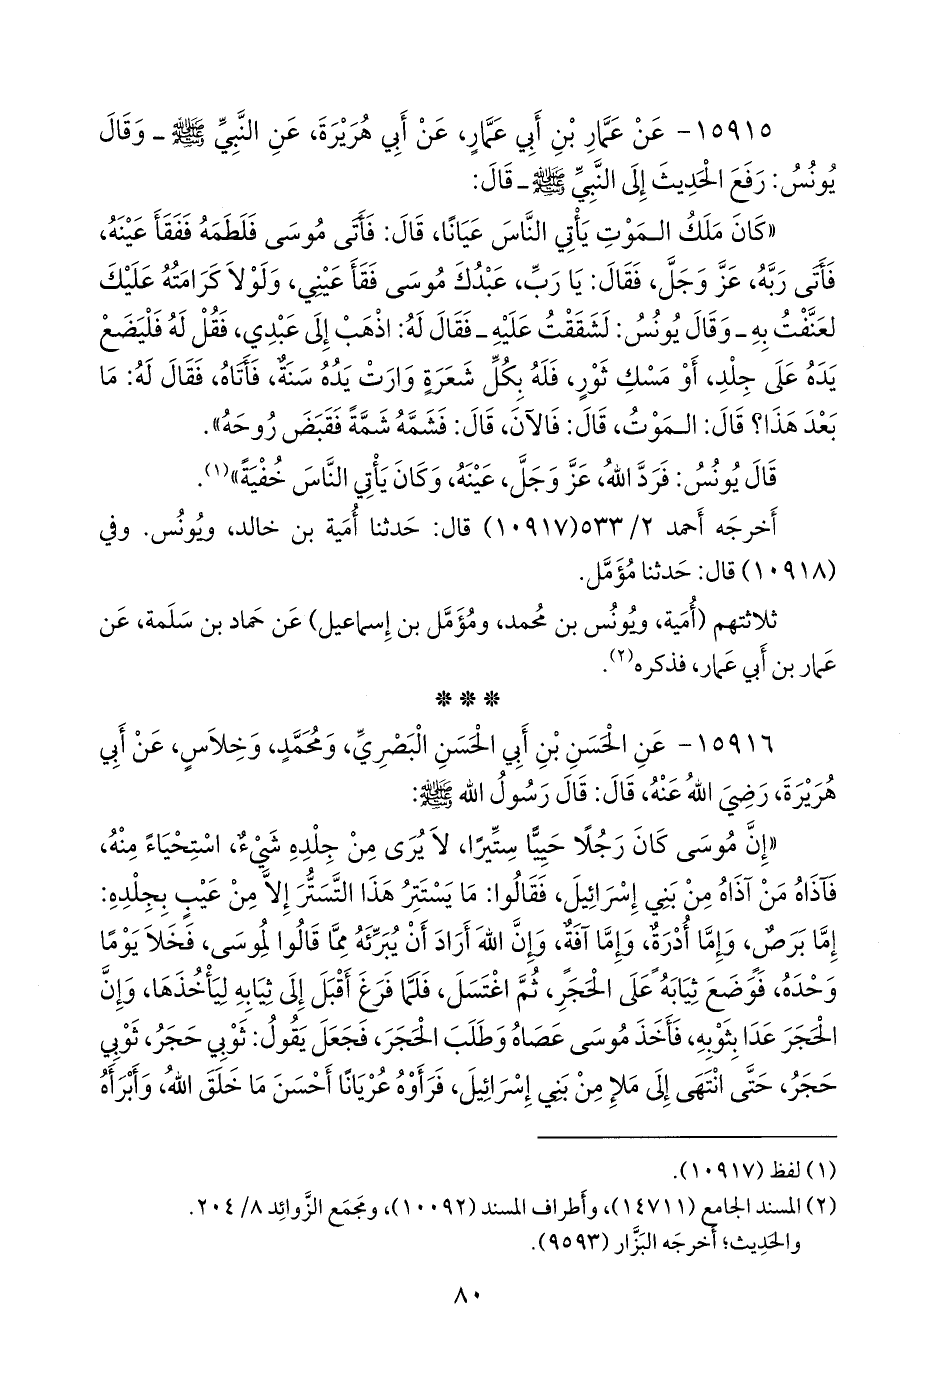 ١٥٩١٥- عَنْ عَمَّارِ بْنِ أَبِي عَمَّارٍ، عَنْ أَبِي هُرَيْرَةَ، عَنِ النَّبِيِّ ﷺ ـ وَقَالَ
يُونُسُ: رَفَعَ الْحَدِيثَ إِلَى النَّبِيِّ ﷺ ـ قَالَ:
«كَانَ مَلَكُ الـمَوْتِ يَأْتِي النَّاسَ عَيَانًا، قَالَ: فَأَتَى مُوسَى فَلَطَمَهُ فَفَقَأَ عَيْنَهُ،
فَأَتَى رَبَّهُ، عَزَّ وَجَلَّ، فَقَالَ: يَا رَبِّ، عَبْدُكَ مُوسَى فَقَأَ عَيْنِي، وَلَوْلاَ كَرَامَتُهُ عَلَيْكَ
لعَنَّفْتُ بِهِ ـ وَقَالَ يُونُسُ: لَشَقَقْتُ عَلَيْهِ ـ فَقَالَ لَهُ: اذْهَبْ إِلَى عَبْدِي، فَقُلْ لَهُ فَلْيَضَعْ
يَدَهُ عَلَى جِلْدِ، أَوْ مَسْكِ ثَوْرٍ، فَلَهُ بِكُلِّ شَعَرَةٍ وَارَتْ يَدُهُ سَنَةٌ، فَأَتَاهُ، فَقَالَ لَهُ: مَا
بَعْدَ هَذَا؟ قَالَ: الـمَوْتُ، قَالَ: فَالآنَ، قَالَ: فَشَمَّهُ شَمَّةً فَقَبَضَ رُوحَهُ».
قَالَ يُونُسُ: فَرَدَّ اللهُ، عَزَّ وَجَلَّ، عَيْنَهُ، وَكَانَ يَأْتِي النَّاسَ خُفْيَةً»(١).
أَخرجَه أَحمد ٢/ ٥٣٣(١٠٩١٧) قال: حَدثنا أُمَية بن خالد، ويُونُس. وفي
(١٠٩١٨) قال: حَدثنا مُؤَمَّل.
ثلاثتهم (أُمَية، ويُونُس بن مُحمد، ومُؤَمَّل بن إِسماعيل) عَن حَماد بن سَلَمة، عَن
عَمار بن أَبي عَمار، فذكره(٢).
* * *
١٥٩١٦- عَنِ الْحَسَنِ بْنِ أَبِي الْحَسَنِ الْبَصْرِيِّ، وَمُحَمَّدٍ، وَخِلاَسٍ، عَنْ أَبِي
هُرَيْرَةَ، رَضِيَ اللهُ عَنْهُ، قَالَ: قَالَ رَسُولُ الله ﷺ:
«إِنَّ مُوسَى كَانَ رَجُلًا حَيِيًّا سِتِّيرًا، لاَ يُرَى مِنْ جِلْدِهِ شَيْءٌ، اسْتِحْيَاءً مِنْهُ،
فَآذَاهُ مَنْ آذَاهُ مِنْ بَنِي إِسْرَائِيلَ، فَقَالُوا: مَا يَسْتَتِرُ هَذَا التَّسَتُّرَ إِلاَّ مِنْ عَيْبٍ بِجِلْدِهِ:
إِمَّا بَرَصٌ، وَإِمَّا أُدْرَةٌ، وَإِمَّا آفَةٌ، وَإِنَّ اللهَ أَرَادَ أَنْ يُبَرِّئَهُ مِمَّا قَالُوا لِمُوسَى، فَخَلاَ يَوْمًا
وَحْدَهُ، فَوَضَعَ ثِيَابَهُ عَلَى الْحَجَرِ، ثُمَّ اغْتَسَلَ، فَلَمَّا فَرَغَ أَقْبَلَ إِلَى ثِيَابِهِ لِيَأْخُذَهَا، وَإِنَّ
الْحَجَرَ عَدَا بِثَوْبِهِ، فَأَخَذَ مُوسَى عَصَاهُ وَطَلَبَ الْحَجَرَ، فَجَعَلَ يَقُولُ: ثَوْبِي حَجَرُ، ثَوْبِي
حَجَرُ، حَتَّى انْتَهَى إِلَى مَلإٍ مِنْ بَنِي إِسْرَائِيلَ، فَرَأَوْهُ عُرْيَانًا أَحْسَنَ مَا خَلَقَ اللهُ، وَأَبْرَأَهُ
(١) لفظ (١٠٩١٧).
(٢) المسند الجامع (١٤٧١١)، وأَطراف المسند (١٠٠٩٢)، ومَجمَع الزَّوائِد ٨/ ٢٠٤.
والحَدِيث؛ أَخرجَه البَزَّار (٩٥٩٣).
٨٠